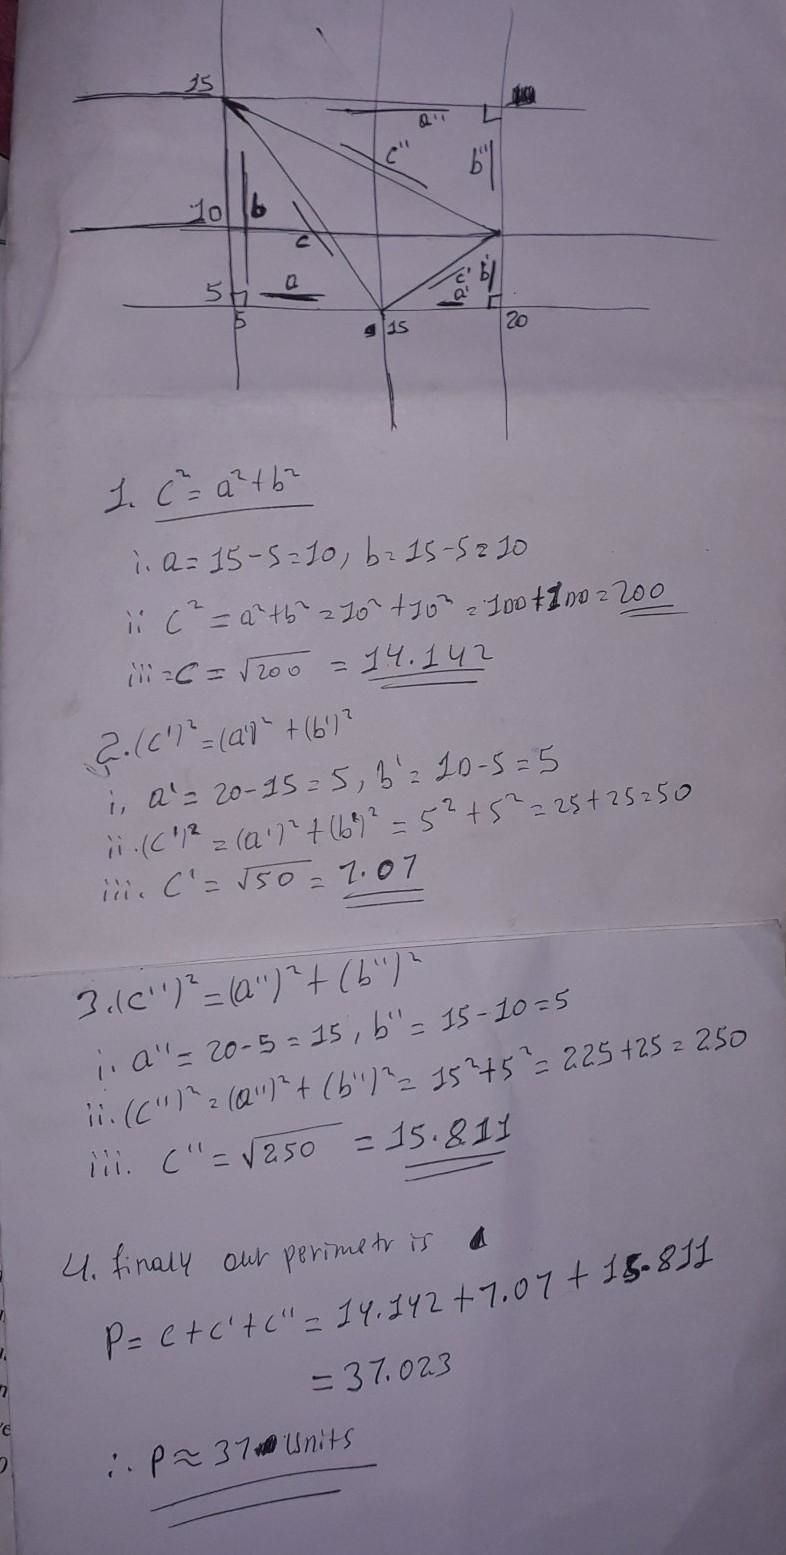 15
a"
c"
b"
10
b
c
5
a
c'
b'
a'
5
15
20
1. c² = a²+b²
i. a = 15-5=10, b=15-5=10
ii c² = a²+b² = 10² + 10² = 100+100 = 200
iii = c = √200 = 14.142
2. (c')² = (a')² + (b')²
i, a' = 20-15 = 5, b' = 10-5 = 5
ii. (c')² = (a')² + (b')² = 5² + 5² = 25+25=50
iii. c' = √50 = 7.07
3. (c'')² = (a'')² + (b'')²
i. a'' = 20-5 = 15, b'' = 15-10=5
ii. (c'')² = (a'')² + (b'')² = 15²+5² = 225+25 = 250
iii. c'' = √250 = 15.811
4. finaly our perimetr is
P= c+c'+c'' = 14.142+7.07+15.811
= 37.023
∴ P≈37 Units